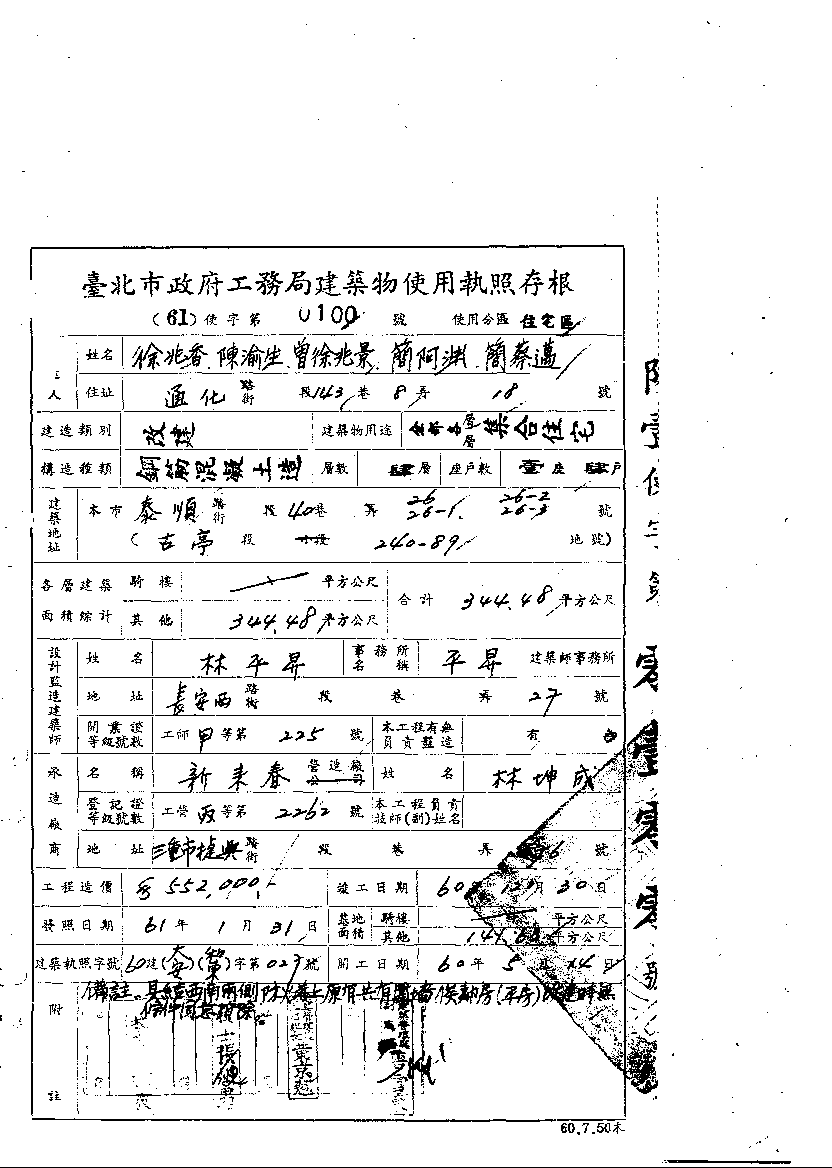 臺北市政府工務局建築物使用執照存根
(61)使字第 0100 號 使用分區 住宅區
姓名 徐兆香 陳渝生 曾徐兆景 簡阿渊 簡蔡邁
人 住址 通化 路街 段 143 巷 8 弄 18 號
建造類別 改建 建築物用途 全部各層集合住宅
構造種類 鋼筋混凝土造 層數 肆層 座戶數 壹座 肆戶
建築地址 本市 泰順 路街 段 40巷 弄 26 26-1. 26-2 26-3 號
(古亭 段 小段 240-89 地號)
各層建築面積綜計 騎樓 平方公尺 合計 344.48 平方公尺
其他 344.48 平方公尺
設計監造建築師 姓名 林平昇 事務所名稱 平昇 建築師事務所
地址 長安西 路街 段 巷 弄 27 號
開業證等級號數 工師 甲 等第 225 號 本工程有無負責監造 有
承造廠商 名稱 新來春 營造廠公司 姓名 林坤成
登記證等級號數 工營 丙 等第 2262 號 本工程負責技師(副)姓名
地址 三重市 路街 段 巷 弄 號
工程造價 552,000.- 竣工日期 60年 12月 30日
發照日期 61年 1月 31日 基地面積 騎樓 平方公尺
其他 平方公尺
建築執照字號 60建(大安)( )字第 027 號 開工日期 60年 5月 14日
附註 備註
60.7.50本